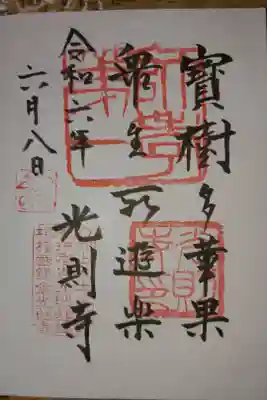 寳樹多華果
衆生所遊樂
光則寺
令和六年
六月八日